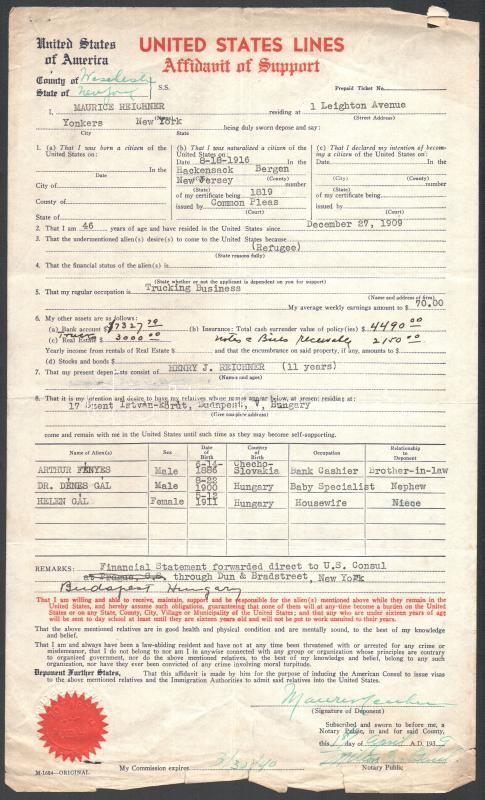 United States of America
UNITED STATES LINES
Affidavit of Support
County of Weschester
State of New York S.S.
Prepaid Ticket No.
I, MAURICE REICHNER residing at 1 Leighton Avenue
(Name) (Street Address)
Yonkers New York being duly sworn depose and say:
City State
1. (a) That I was born a citizen of the United States on:
Date
In the
City of
County of
State of
(b) That I was naturalized a citizen of the United States on:
Date 8-18-1916 In the
Hackensack Bergen
(City) (County)
New Jersey number
(State)
of my certificate being 1819
issued by Common Pleas
(Court)
(c) That I declared my intention of becoming a citizen of the United States on:
Date In the
(City) (County)
number
(State)
of my certificate being
issued by
(Court)
2. That I am 46 years of age and have resided in the United States since December 27, 1909
3. That the undermentioned alien(s) desire(s) to come to the United States because
(Refugee)
(State reasons fully)
4. That the financial status of the alien(s) is
(State whether or not the applicant is dependent on you for support)
5. That my regular occupation is Trucking Business
(Name and address of firm)
My average weekly earnings amount to $ 70.00
6. My other assets are as follows:
(a) Bank account $ 7327.79 (b) Insurance: Total cash surrender value of policy(ies) $ 4490.00
(c) Real Estate $ 3000.00 Notes & Bills receivable 2150.00
Yearly income from rentals of Real Estate $ and that the encumbrance on said property, if any, amounts to $
(d) Stocks and bonds $
7. That my present dependents consist of HENRY J. REICHNER (11 years)
(Names and ages)
8. That it is my intention and desire to have my relatives whose names appear below, at present residing at:
17 Szent Istvan-Körut, Budapest, V, Hungary
(Give complete address)
come and remain with me in the United States until such time as they may become self-supporting.
Name of Alien(s) Sex Date of Birth Country of Birth Occupation Relationship to Deponent
ARTHUR FENYES Male 6-14-1886 Checho-Slovakia Bank Cashier Brother-in-law
DR. DENES GAL Male 8-22 1900 Hungary Baby Specialist Nephew
HELEN GAL Female 6-12 1911 Hungary Housewife Niece
REMARKS: Financial Statement forwarded direct to U.S. Consul
at Prague, C.S. through Dun & Bradstreet, New York
Budapest Hungary
That I am willing and able to receive, maintain, support and be responsible for the alien(s) mentioned above while they remain in the
United States, and hereby assume such obligations, guaranteeing that none of them will at any-time become a burden on the United
States or on any State, County, City, Village or Municipality of the United States; and that any who are under sixteen years of age
will be sent to day school at least until they are sixteen years old and will not be put to work unsuited to their years.
That the above mentioned relatives are in good health and physical condition and are mentally sound, to the best of my knowledge
and belief.
That I am and always have been a law-abiding resident and have not at any time been threatened with or arrested for any crime or
misdemeanor, that I do not belong to nor am I in anywise connected with any group or organization whose principles are contrary
to organized government, nor do the above mentioned relatives, to the best of my knowledge and belief, belong to any such
organization, nor have they ever been convicted of any crime involving moral turpitude.
Deponent Further States, That this affidavit is made by him for the purpose of inducing the American Consul to issue visas
to the above mentioned relatives and the Immigration Authorities to admit said relatives into the United States.
Maurice Reichner
(Signature of Deponent)
Subscribed and sworn to before me, a
Notary Public, in and for said County,
this 1st day of April A.D. 1939
Notary Public
My Commission expires 3/30/40
M-1604—ORIGINAL